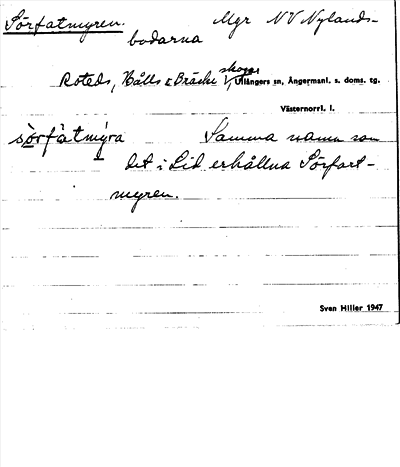 Sörfatmyren. Myr NV Nylands-
bodarna
Roteds, Hålls & Bräcke skogar, Ullångers sn, Ångermanl. s. doms. tg.
Västernorrl. l.
sö̀rfàtmýra Samma namn som
det i Lid erhållna Sörfart-
myren.
Sven Hiller 1947